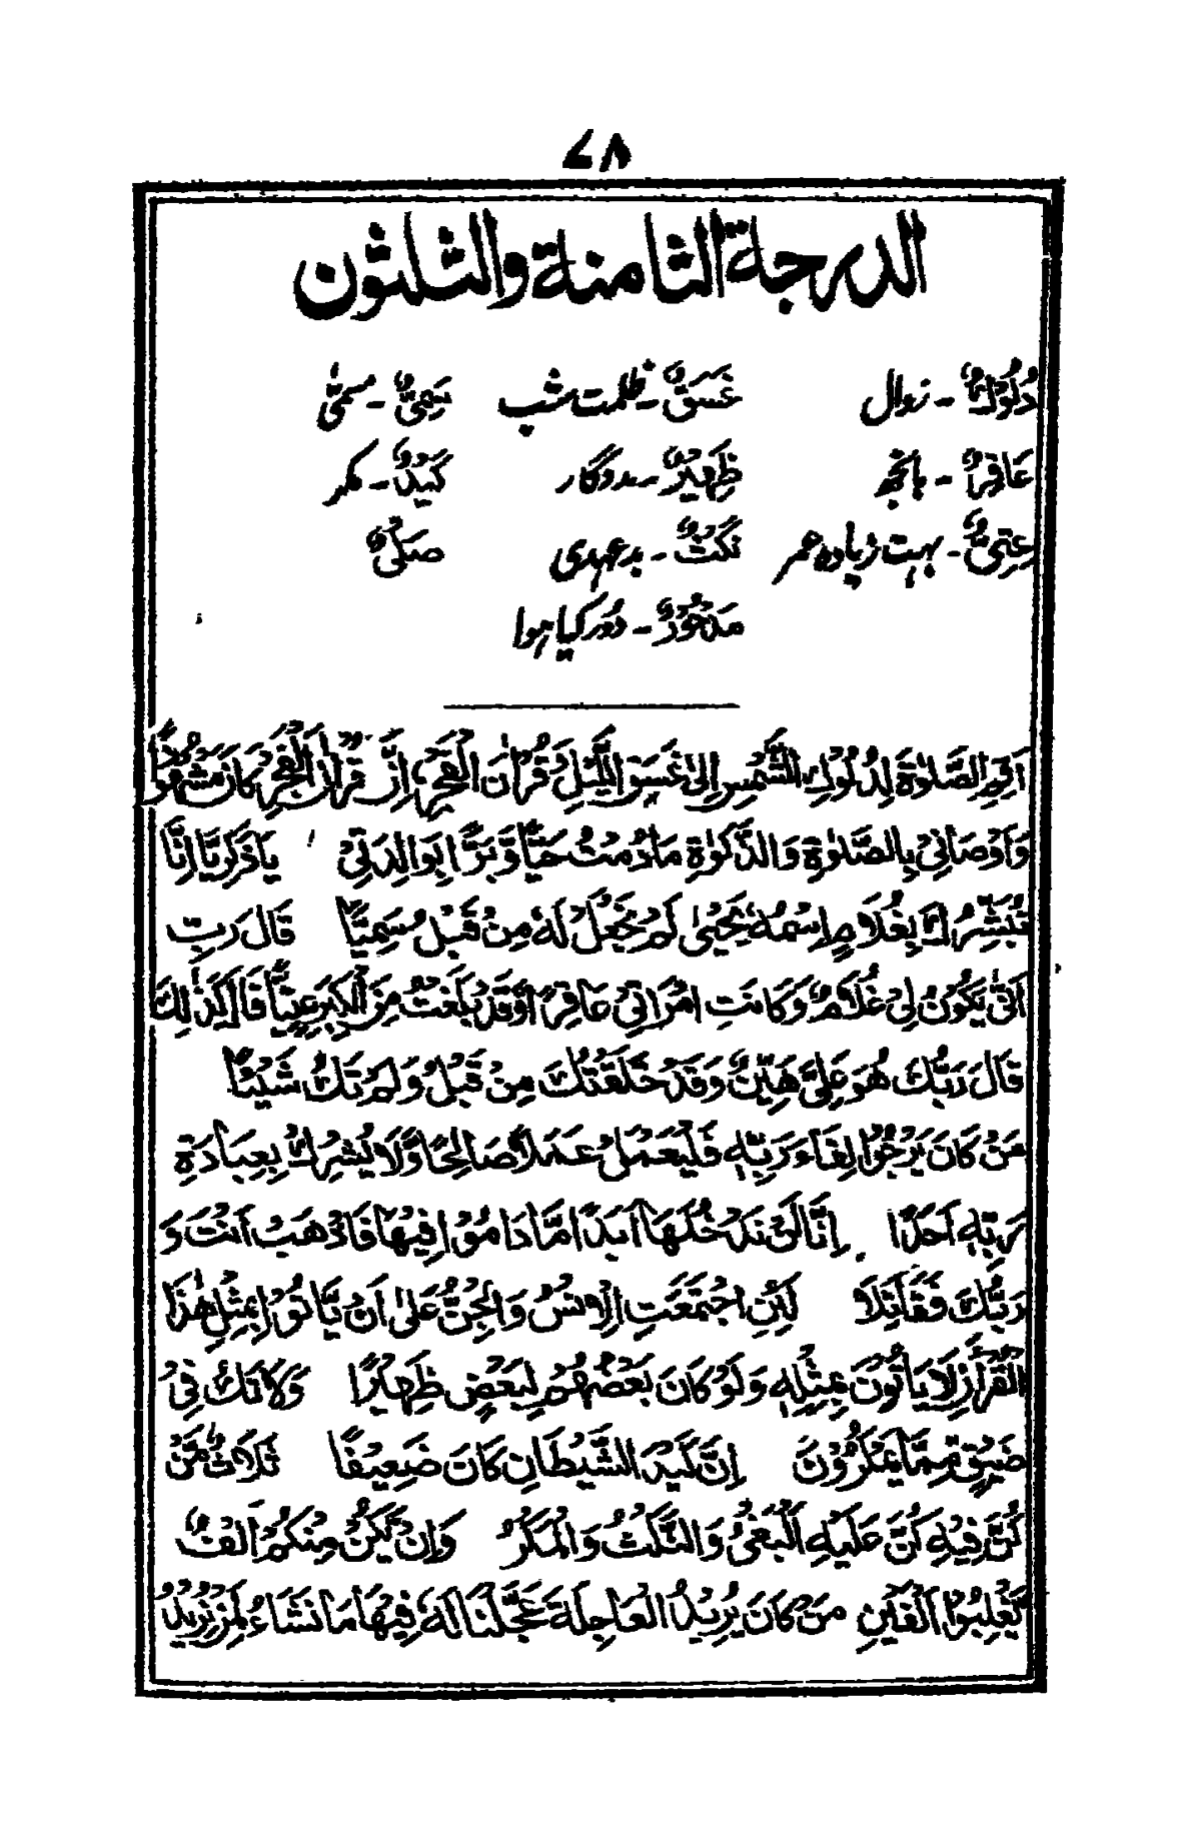 ۷۸
الدرجة الثامنة والثلثون
دُلُوْكٌ - زوال غَسَقٌ - ظلمت شب سَمِیٌّ - مسمّٰی
عَاقِرٌ - بانجھ ظَهِیْرٌ - مددگار كَیْدٌ - مکر
عِتِیٌّ - بہت زیادہ عمر نَكْثٌ - بدعہدی صَلْیٌ
مَدْحُوْرٌ - دُور کیا ہوا
اَقِمِ الصَّلٰوةَ لِدُلُوْكِ الشَّمْسِ اِلٰى غَسَقِ اللَّیْلِ وَقُرْاٰنَ الْفَجْرِ اِنَّ قُرْاٰنَ الْفَجْرِ كَانَ مَشْهُوْدًا
وَاَوْصَانِیْ بِالصَّلٰوةِ وَالزَّكٰوةِ مَادُمْتُ حَیًّا وَّ بَرًّا بِوَالِدَتِیْ یَا زَكَرِیَّا اِنَّا
نُبَشِّرُكَ بِغُلَامٍ اِسْمُهٗ یَحْیٰى لَمْ نَجْعَلْ لَهٗ مِنْ قَبْلُ سَمِیًّا قَالَ رَبِّ
اَنّٰى یَكُوْنُ لِیْ غُلَامٌ وَكَانَتِ امْرَاَتِیْ عَاقِرًا وَّقَدْ بَلَغْتُ مِنَ الْكِبَرِ عِتِیًّا قَالَ كَذٰلِكَ
قَالَ رَبُّكَ هُوَ عَلَیَّ هَیِّنٌ وَقَدْ خَلَقْتُكَ مِنْ قَبْلُ وَلَمْ تَكُ شَیْئًا
مَنْ كَانَ یَرْجُوْا لِقَاءَ رَبِّهٖ فَلْیَعْمَلْ عَمَلًا صَالِحًا وَّلَا یُشْرِكْ بِعِبَادَةِ
رَبِّهٖ اَحَدًا اِنَّا لَنْ نَدْخُلَهَا اَبَدًا مَّا دَامُوْا فِیْهَا فَاذْهَبْ اَنْتَ وَ
رَبُّكَ فَقَاتِلَا لَئِنِ اجْتَمَعَتِ الْاِنْسُ وَالْجِنُّ عَلٰى اَنْ یَّاْتُوْا بِمِثْلِ هٰذَا
الْقُرْاٰنِ لَا یَاْتُوْنَ بِمِثْلِهٖ وَلَوْ كَانَ بَعْضُهُمْ لِبَعْضٍ ظَهِیْرًا وَلَا تَكُ فِیْ
ضَیْقٍ مِّمَّا یَمْكُرُوْنَ اِنَّ كَیْدَ الشَّیْطَانِ كَانَ ضَعِیْفًا ثَلَاثٌ مَّنْ
كُنَّ فِیْهِ كُنَّ عَلَیْهِ اَلْبَغْیُ وَالنَّكْثُ وَالْمَكْرُ وَاِنْ یَّكُنْ مِنْكُمْ اَلْفٌ
یَّغْلِبُوْا اَلْفَیْنِ مَنْ كَانَ یُرِیْدُ الْعَاجِلَةَ عَجَّلْنَا لَهٗ فِیْهَا مَا نَشَاءُ لِمَنْ نُرِیْدُ